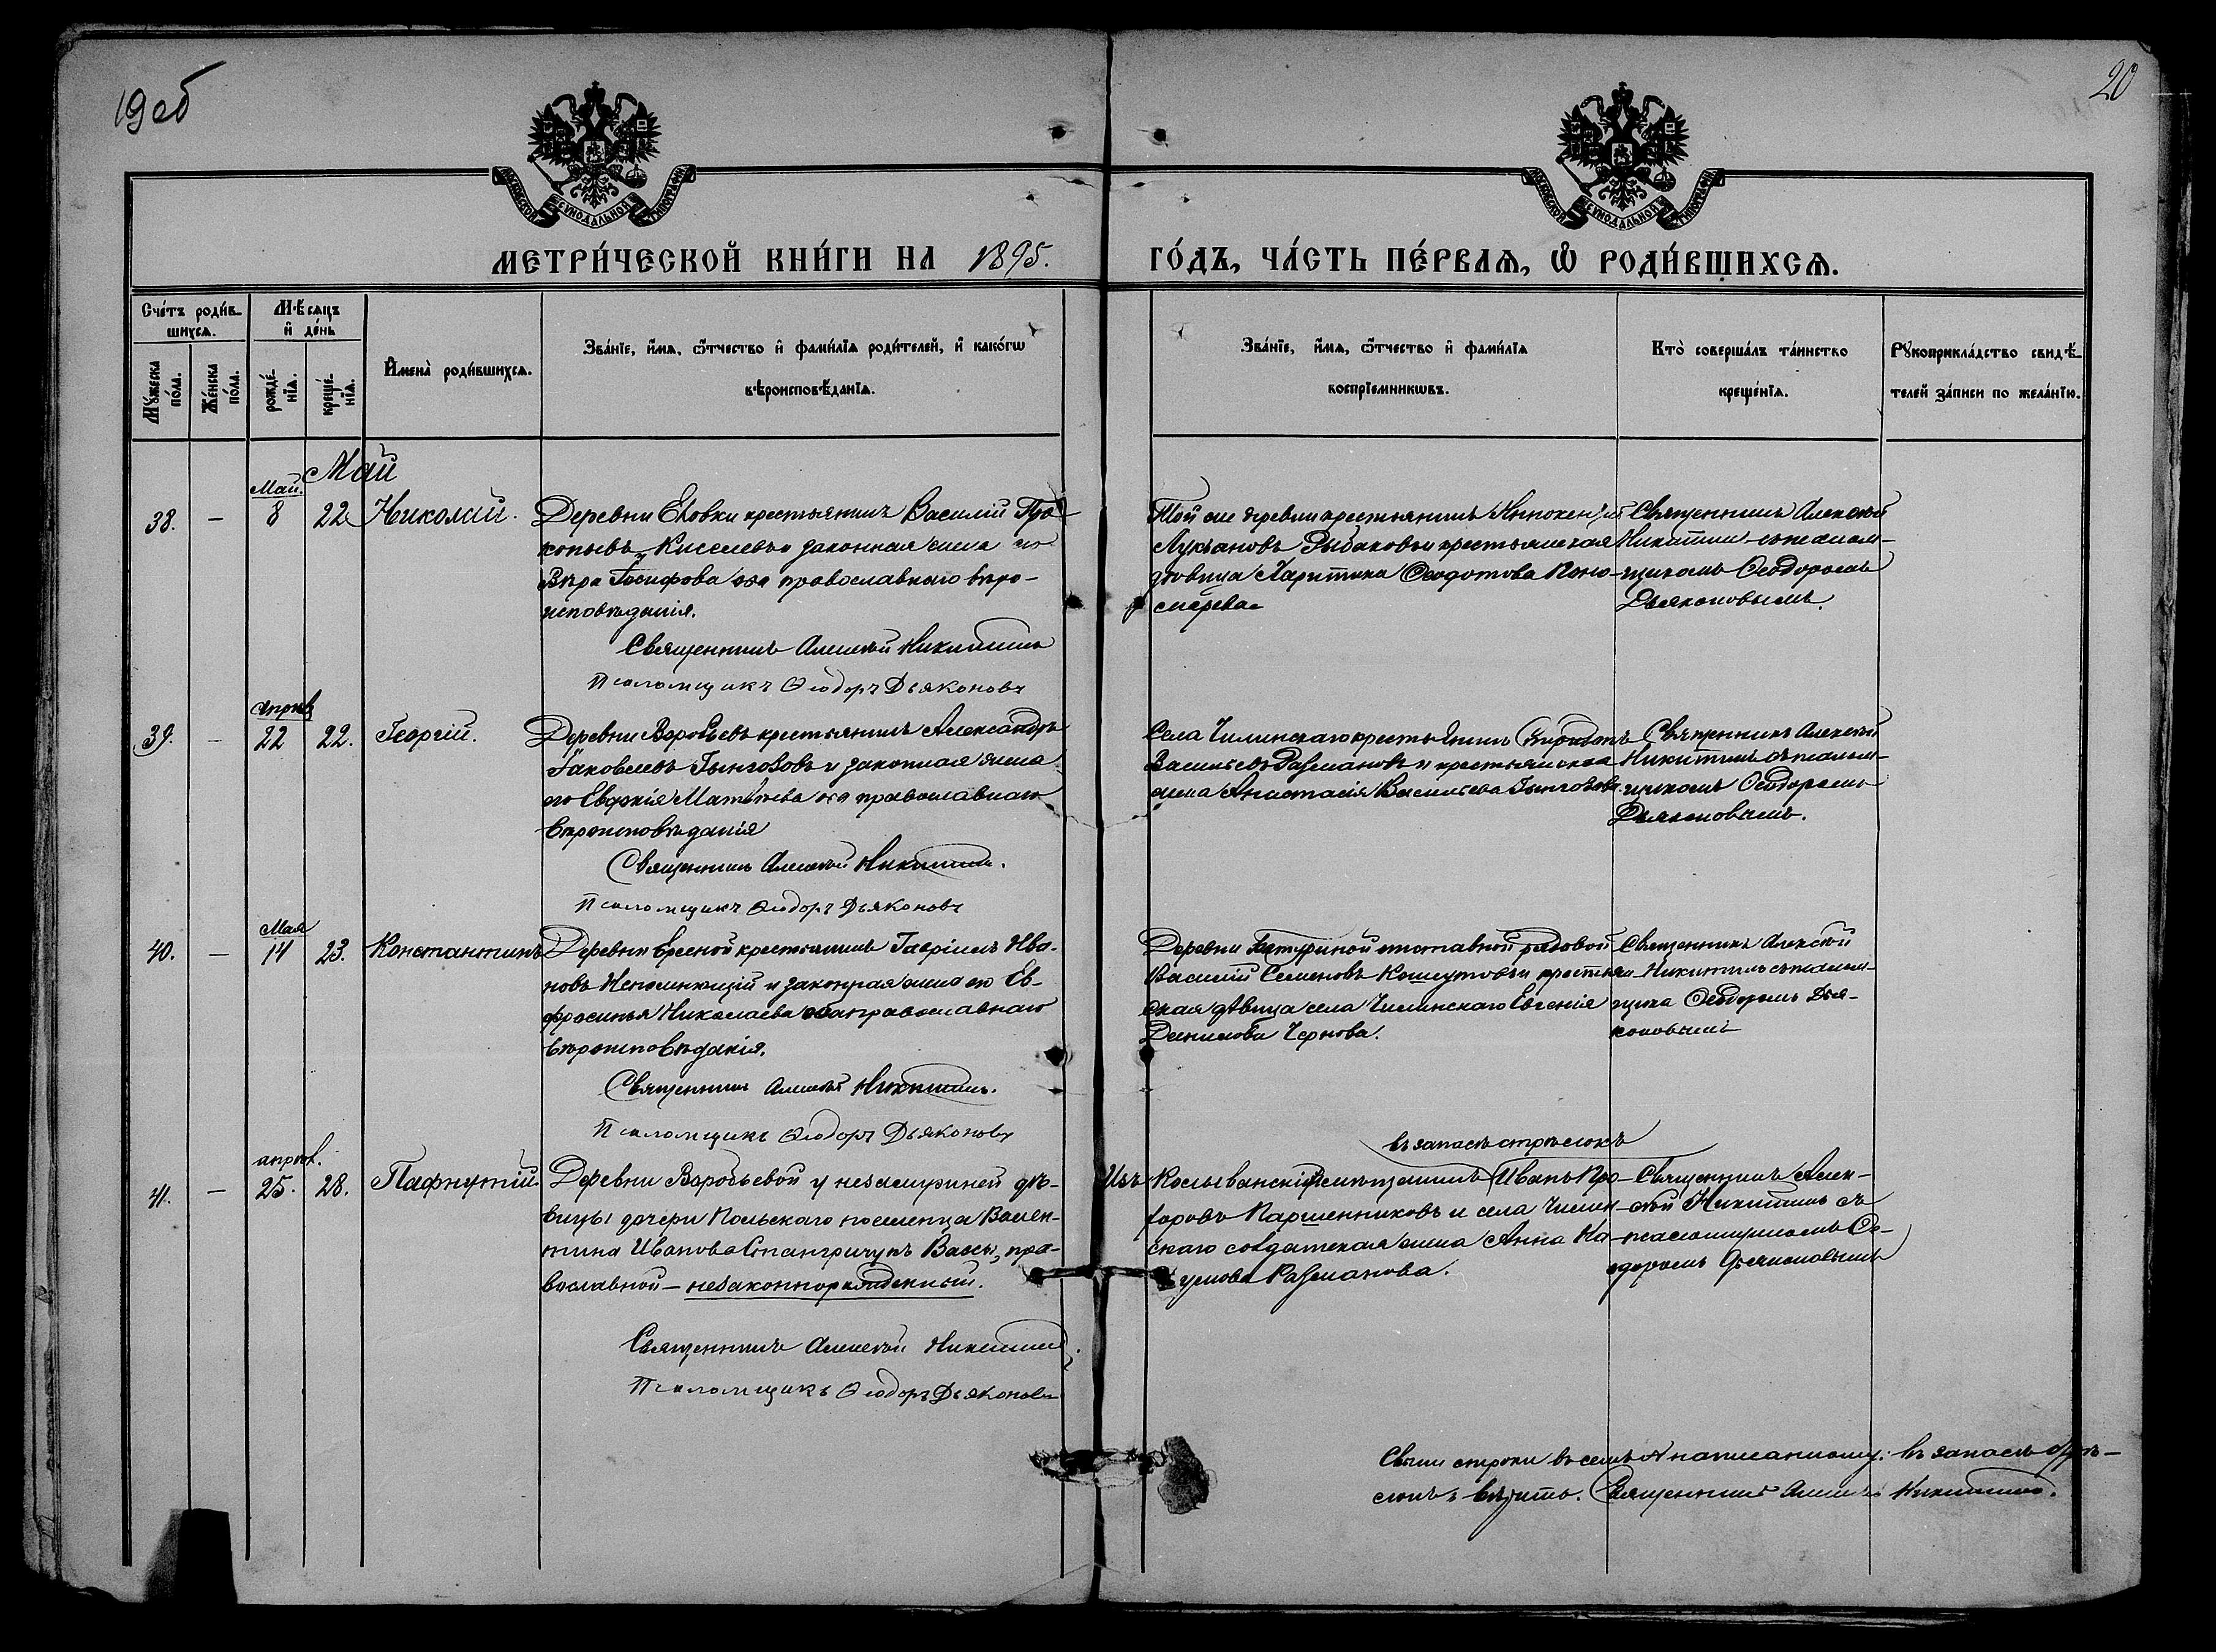 19 об
20
МОСКОВСКОЙ СѴНОДАЛЬНОЙ ТИПОГРАФІИ
МОСКОВСКОЙ СѴНОДАЛЬНОЙ ТИПОГРАФІИ
МЕТРИ́ЧЕСКОЙ КНИ́ГИ НА 1895. ГО́ДЪ, ЧА́СТЬ ПЕ́РВАѦ, Ѽ РОДИ́ВШИХСѦ.
Счéтъ роди́в-
шихсѧ.
Мꙋ́жеска по́ла.
Же́нска по́ла.
Мѣ́сѧцъ
и҆ де́нь
рожде́-нїѧ.
креще́-нїѧ.
И҆мена̀ роди́вшихсѧ.
Зва́нїе, и҆́мѧ, ѻ҆́тчество и҆ фами́лїѧ роди́телей, и҆ како́гѡ
вѣроисповѣ́данїѧ.
Зва́нїе, и҆́мѧ, ѻ҆́тчество и҆ фами́лїѧ
воспрїе́мникѡвъ.
Кто̀ соверша́лъ та́инство
креще́нїѧ.
Рꙋкоприкла́дство свидѣ́-
телей за́писи по жела́нїю.
Май
Май.
38. — 8 22 Николай.
Деревни Еловки крестьянинъ Василій Про-
копьевъ Киселевъ и законная жена его
Вѣра Іосифова оба православнаго вѣро-
исповѣданія.
Священникъ Алексѣй Никитинъ
Псаломщикъ Ѳеодоръ Дьяконовъ
Той же деревни крестьянинъ Иннокентій
Лукьановъ Рыбаковъ и крестьянская
дѣвица Харитина Ѳеодотова
Священникъ Алексѣй
Никитинъ съ псалом-
щикомъ Ѳеодоромъ
Дьяконовымъ.
апрѣл
39. — 22 22. Георгій.
Деревни Воробьевъ крестьянинъ Александръ
Іаковлевъ и законная жена
его Евдокія Матвѣева оба православнаго
вѣроисповѣданія
Священникъ Алексѣй Никитинъ.
Псаломщикъ Ѳеодоръ Дьяконовъ
Села Чилинскаго крестьянинъ Спиридонъ
Васильевъ Размановъ и крестьянская
жена Анастасія Васильева
Священникъ Алексѣй
Никитинъ съ псалом-
щикомъ Ѳеодоромъ
Дьяконовымъ.
Мая
40. — 14 23. Константинъ
Деревни Ересной крестьянинъ Гавріилъ Ива-
новъ Непомнющій и законная жена его Ев-
фросинья Николаева оба православнаго
вѣроисповѣданія.
Священникъ Алексѣй Никитинъ.
Псаломщикъ Ѳеодоръ Дьяконовъ
Деревни Батуриной отставной рядовой
Василій Семеновъ и крестьян-
ская дѣвица села Чилинскаго Евгенія
Данилова Чернова.
Священникъ Алексѣй
Никитинъ съ псалом-
щика Ѳеодоромъ Дья-
коновымъ
апрѣл.
41. — 25. 28. Пафнутій
Деревни Воробьевой у незамужней дѣ-
вицы дочери Польскаго поселенца Вален-
тина Иванова Вассы, пра-
вославной — незаконнорожденный.
Священникъ Алексѣй Никитинъ.
Псаломщикъ Ѳеодоръ Дьяконовъ
въ запасѣ стрѣлокъ
Изъ Колыванскій мѣщанинъ Иванъ Про-
хоровъ Паршенниковъ и села Чилин-
скаго солдатская жена Анна На-
умова Разманова.
Священникъ Алек-
сѣй Никитинъ съ
псаломщикомъ Ѳе-
одоромъ Дьяконовымъ
Свыше строки въ семъ написанному: въ запасѣ стрѣ-
локъ вѣрить. Священникъ Алексѣй Никитинъ.